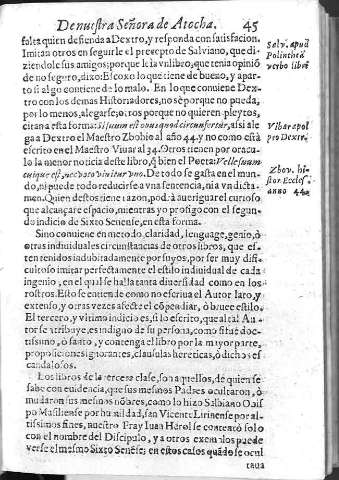 De nuestra Señora de Atocha. 45
falta quien defienda a Dextro, y responda con satisfacion.
Imitan otros en seguirle el precepto de Salviano, que di-
ziendole sus amigos; porque leìa vn libro, que tenia opiniõ
de no seguro, dixo: Es oxo lo que tiene de bueno, y apar-
to si algo contiene de lo malo. En lo que conuiene Dex-
tro con los demas Historiadores, no sè porque no pueda,
por lo menos, alegarse; otros porque no quieren pleytos,
citan a esta forma: Si suum est onus quod circunfertur, assi ale-
ga a Dextro el Maestro Zbobio al año 44. y no como està
escrito en el Maestro Viuar al 34. Otros tienen por oracu-
lo la menor noticia deste libro, q̃ bien el Poeta: Velle suum
cuique est, nec voto viuitur vno. De todo se gasta en el mun-
do, ni puede todo reducirse a vna sentencia, ni a vn dicta-
men. Quien destos tiene razon, podrà aueriguar el curioso
que alcançare espacio, mientras yo prosigo con el segun-
do indicio de Sixto Senense, en esta forma.
Sino conuiene en metodo, claridad, lenguage, genio, ò
otras indiuiduales circunstancias de otros libros, que es-
ten tenidos indubitadamente por suyos, por ser muy difi-
cultoso imitar perfectamente el estilo indiuidual de cada
ingenio, en el qual se halla tanta diuersidad como en los
rostros. Esto se entiende como no escriua el Autor largo, y
extenso, y otras vezes afecte el cõpendiar, ò breue estilo.
El tercero, y vltimo indicio es, si lo escrito, que al tal Au-
tor se atribuye, es indigno de su persona, como si fue doc-
tissimo, ò santo, y contenga el libro por la mayor parte,
proposiciones ignorantes, clausulas hereticas, ò dichos es-
candalosos.
Los libros de la tercera clase, son aquellos, de quien se
sabe con euidencia, que sus mesmos Padres ocultaron, ò
mudaron sus mesmos nõbres, como lo hizo Salbiano Obis-
po Masiliense por humildad, san Vicente Lirinense por al-
tissimos fines, nuestro Fray Iuan Herol se contentò solo
con el nombre del Discipulo, y a otros exemplos puede
verse el mesmo Sixto Senense; en estos casos quãdo se ocul
taua
Salv. apud
Polinthea
verbo libri
Vibar apol
pro Dextro.
Zbov. hi-
stor Eccles.
anno 44.